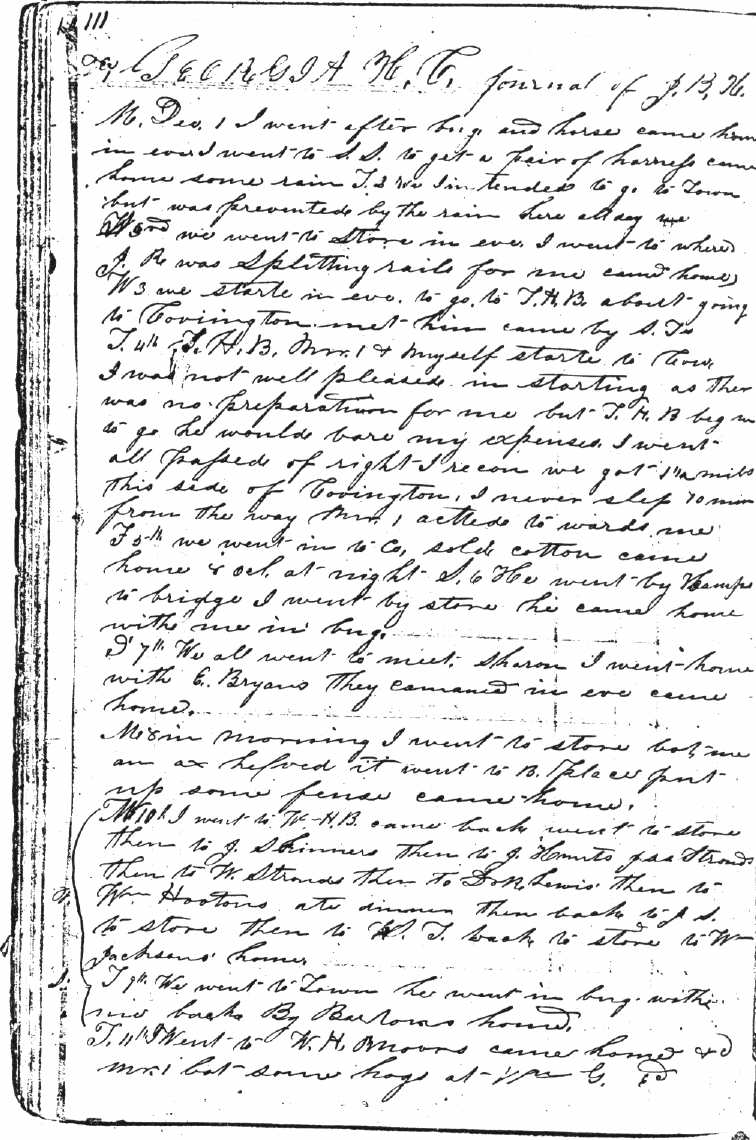 111
GEORGIA H, C, Journal of J. B. H.
M. Dec. 1 I went after bug. and horse came hom
in eve. I went to S. S. to get a pair of harness came
home some rain T. 2 We Intended to go to Town
but was prevented by the rain here all day we
W 3rd we went to Store in eve. I went to where
J. R. was Splitting rails for me came home
W 3 we starte in eve. to go to T. H. B. about going
to Covington met him came by S. T's
T. 4th T. H. B. Mr. 1 & myself starte to Cov.
I was not well pleased in starting as ther
was no preparation for me but T. H. B beg me
to go he would bare my expenses. I went
all passed of right I recon we got 1 1/2 mils
this side of Covington, I never slep 10 min
from the way Mr. 1 acted to wards me
F 5th we went in to Co, sold cotton came
home at night S. 6 He went by Kamps
to bridge I went by store he came home
withe me in bug.
S 7th We all went to meet. Sharon I went home
with E. Bryans they camaned in eve came
home.
M 8 in morning I went to store bot me
an ax helved it went to B. place put
up some fense came home.
10th I went to W. H. B. came back went to store
then to J. Skinners then to J. Hunts Strouds
then to W. Strouds then to Lewis then to
Wm Hootons ate dinner then back to J. S.
to store then to T. back to store to Wm
Jacksons home.
T 9th We went to Town he went in bug. withe
me back By Bartons home.
T. 11th I Went to W. H. Moors came home
Mr. 1 bot some hogs at G.